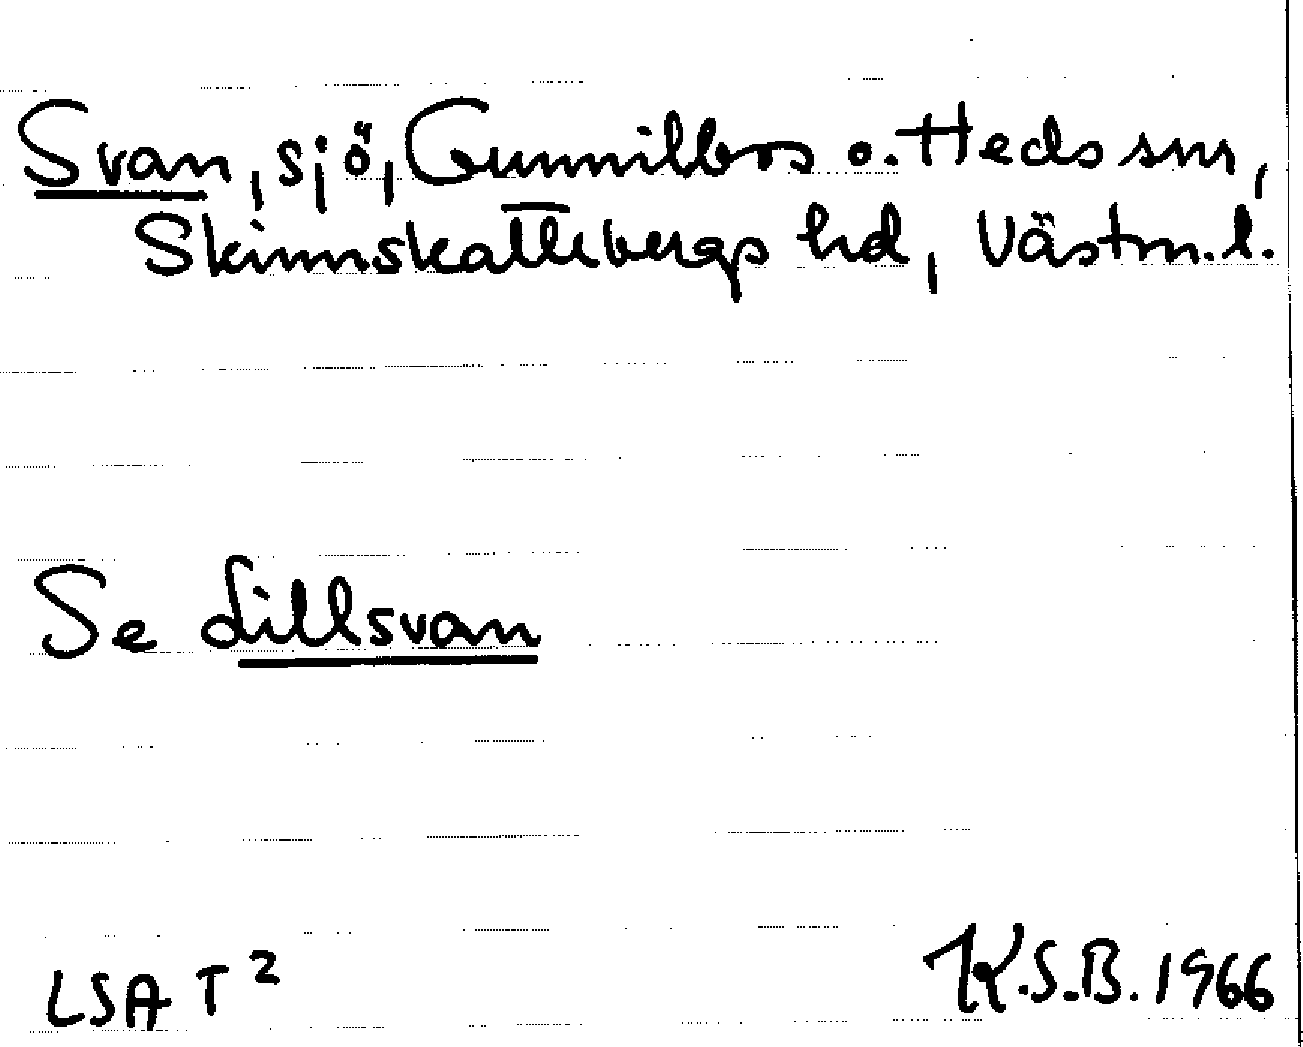 Svan, sjö, Gunnilbos o. Heds snr,
Skinnskattebergs hd, Västm.l.
Se Lillsvan
LSA T 2
K.S.B. 1966